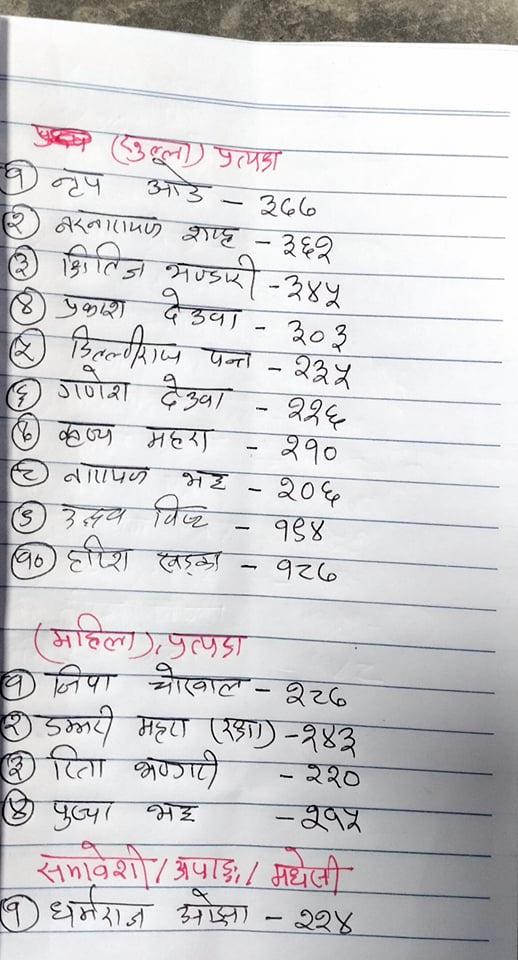 (खुल्ला) प्रत्यक्ष
१ नृप ओड - ३७७
२ नरनारायण शाह - ३६२
३ क्षितिज भण्डारी - ३४५
४ प्रकाश देउवा - ३०३
५ डिल्लीराज पन्त - २३५
६ गणेश देउवा - २२६
७ कृष्ण महरा - २१०
८ नारायण भट्ट - २०६
९ उद्धव विष्ट - १९४
१० हरिश खड्का - १८७
(महिला), प्रत्यक्ष
१ जिपा चोखाल - २८७
२ डम्मरी महरा (रक्षा) - २४३
३ रिता भण्डारी - २२०
४ पुष्पा भट्ट - २१५
समावेशी / अपाङ्ग / मधेसी
१ धर्मराज ओझा - २२४